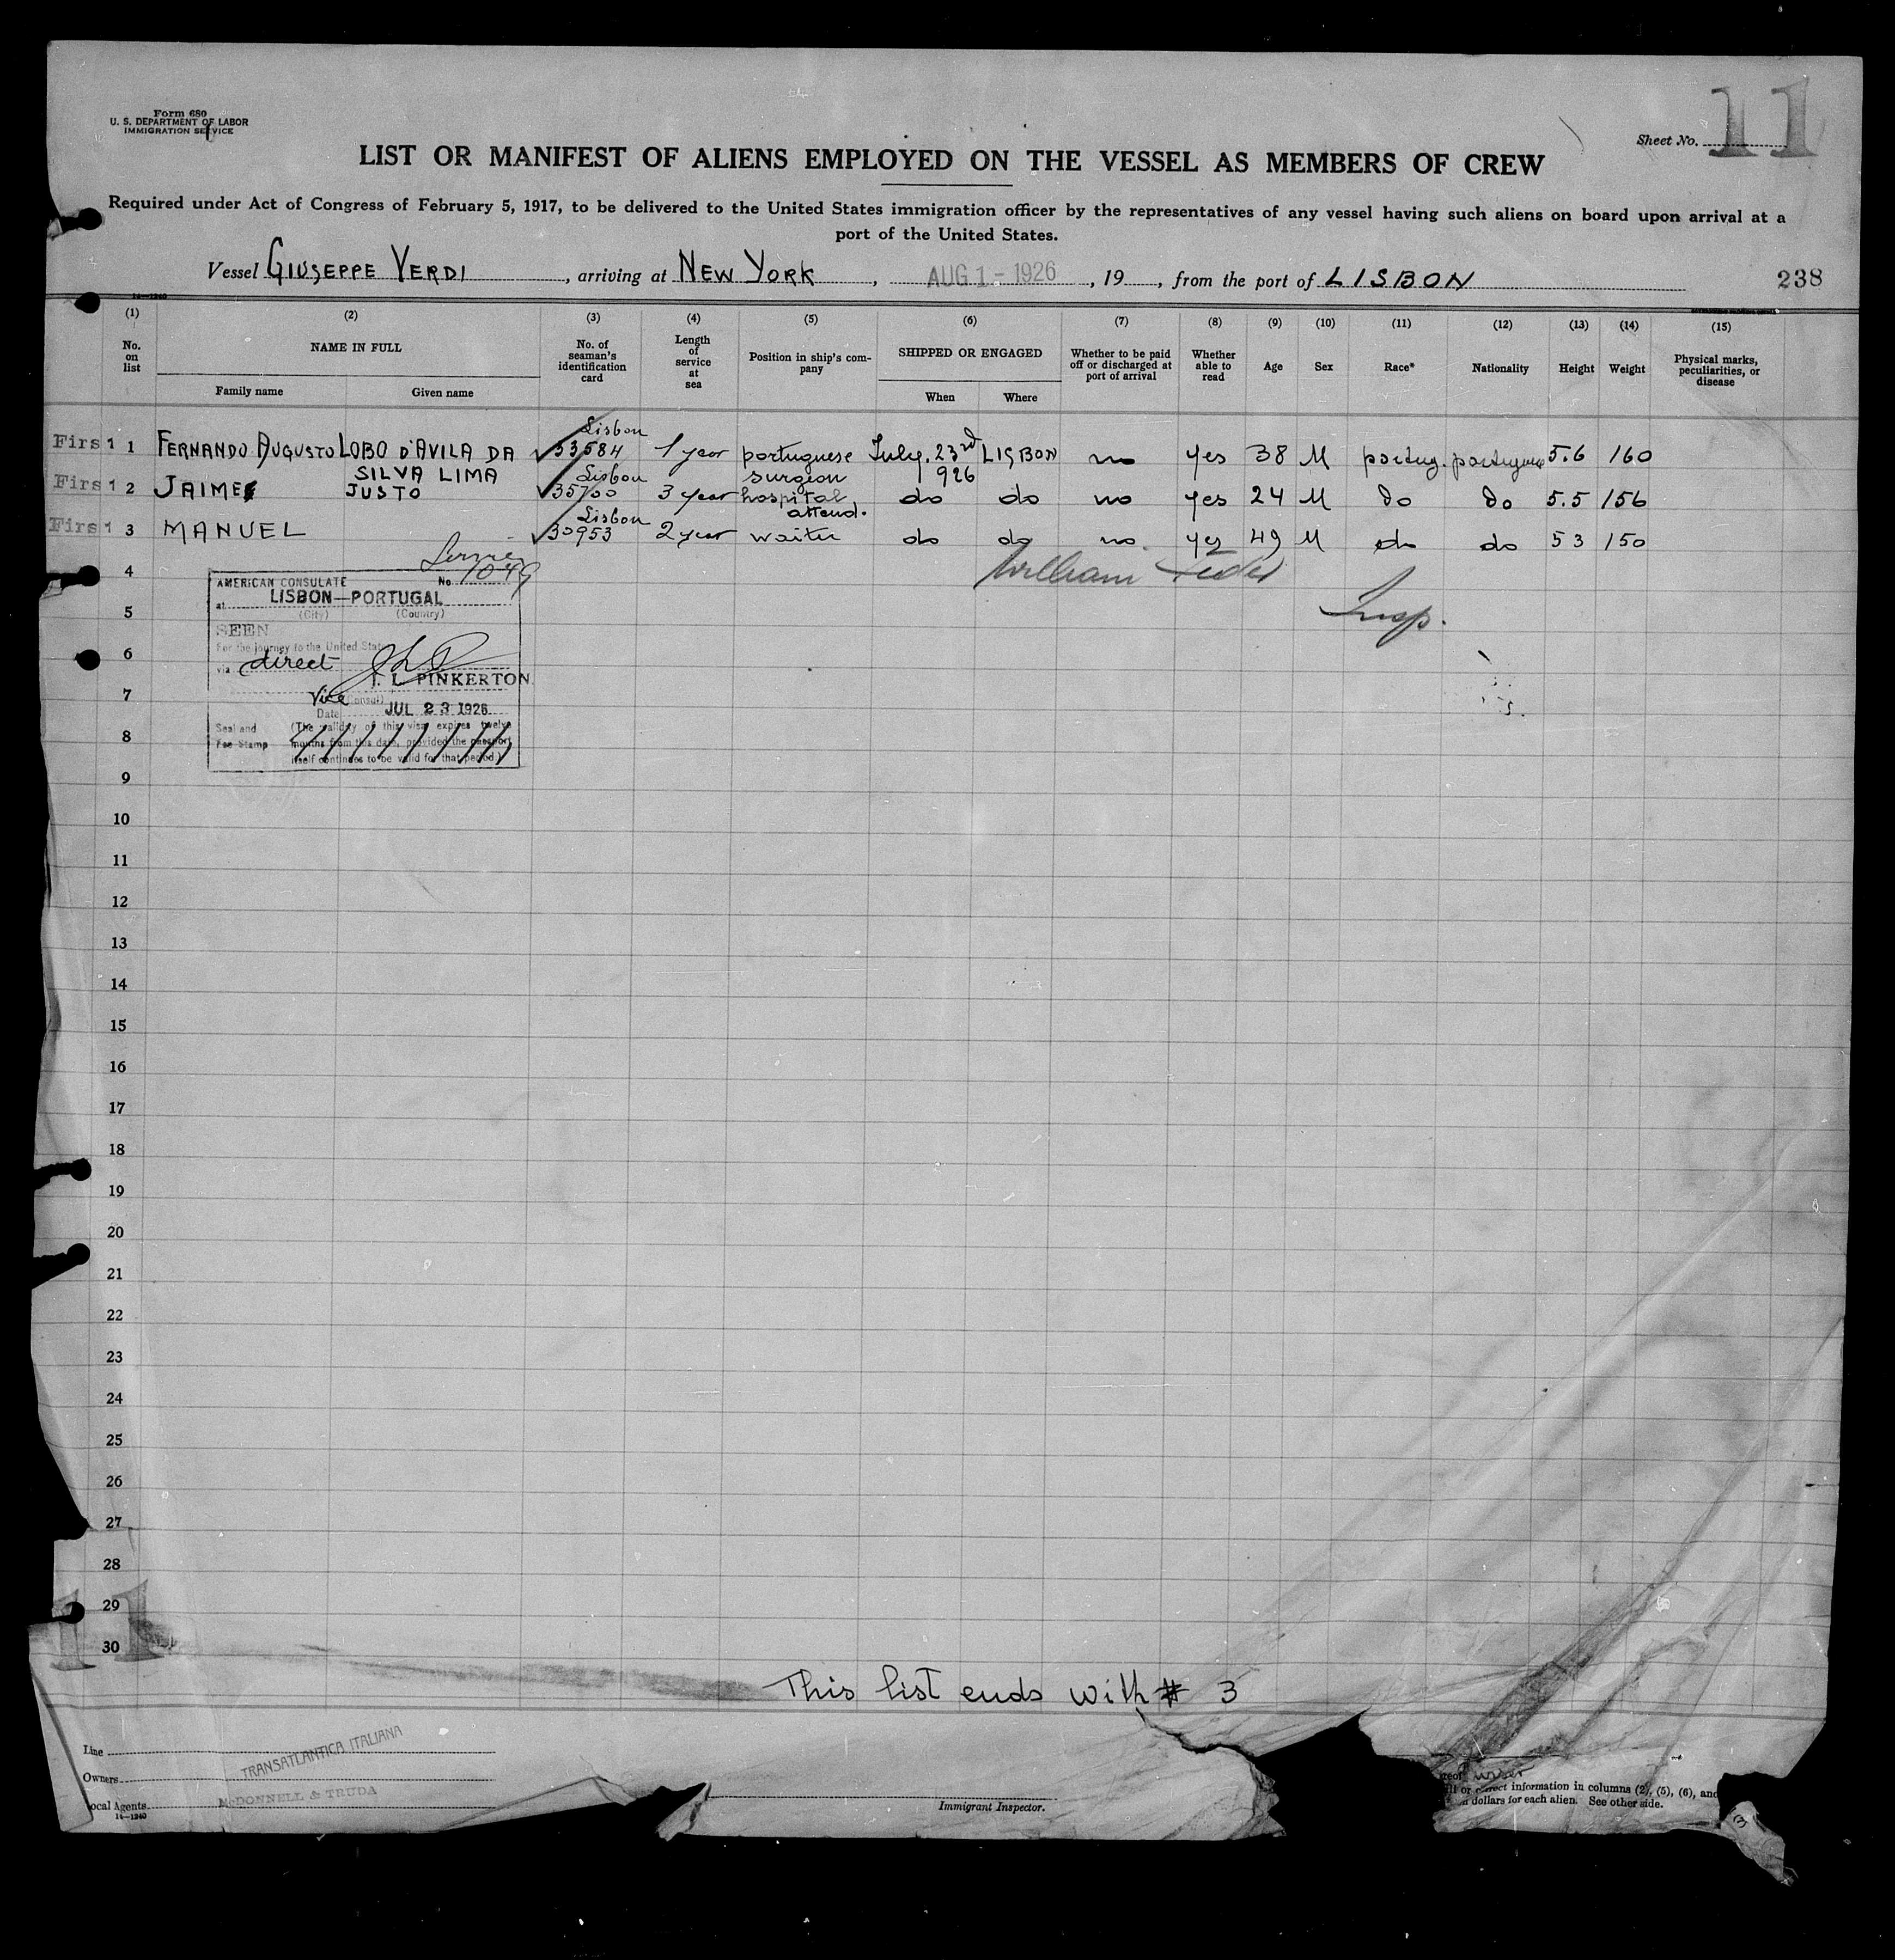 Form 680
U. S. DEPARTMENT OF LABOR
IMMIGRATION SERVICE
Sheet No. 11
LIST OR MANIFEST OF ALIENS EMPLOYED ON THE VESSEL AS MEMBERS OF CREW
Required under Act of Congress of February 5, 1917, to be delivered to the United States immigration officer by the representatives of any vessel having such aliens on board upon arrival at a
port of the United States.
Vessel GIUSEPPE VERDI, arriving at NEW YORK, AUG 1 - 1926, 19, from the port of LISBON
238
14—1240
(1) (2) (3) (4) (5) (6) (7) (8) (9) (10) (11) (12) (13) (14) (15)
No. on list
NAME IN FULL
Family name Given name
No. of seaman's identification card
Length of service at sea
Position in ship's company
SHIPPED OR ENGAGED
When Where
Whether to be paid off or discharged at port of arrival
Whether able to read
Age
Sex
Race*
Nationality
Height
Weight
Physical marks, peculiarities, or disease
Lisbon
First 1 FERNANDO AUGUSTO LOBO D'AVILA DA 33584 1 year portuguese July, 23rd LISBON no yes 38 M portug. portuguese 5.6 160
SILVA LIMA Lisbon surgeon 926
First 2 JAIME JUSTO 35700 3 year hospital do do no yes 24 M do do 5.5 156
Lisbon attend.
First 3 MANUEL 30953 2 year waiter do do no yes 49 M do do 5 3 150
4
5
6
7
8
9
10
11
12
13
14
15
16
17
18
19
20
21
22
23
24
25
26
27
28
29
30
AMERICAN CONSULATE No. 1049
at LISBON—PORTUGAL
(City) (Country)
SEEN
For the journey to the United States
via direct
J. L. PINKERTON
Vice Consul
Date JUL 23 1926
Seal and Fee Stamp
(The validity of this visa expires twelve
months from this date, provided the passport
itself continues to be valid for that period.)
William
Insp.
11
This list ends with # 3
Line
TRANSATLANTICA ITALIANA
Owners
McDONNELL & TRUDA
ocal Agents
14—1240
Immigrant Inspector.
information in columns (2), (5), (6), and
dollars for each alien. See other side.